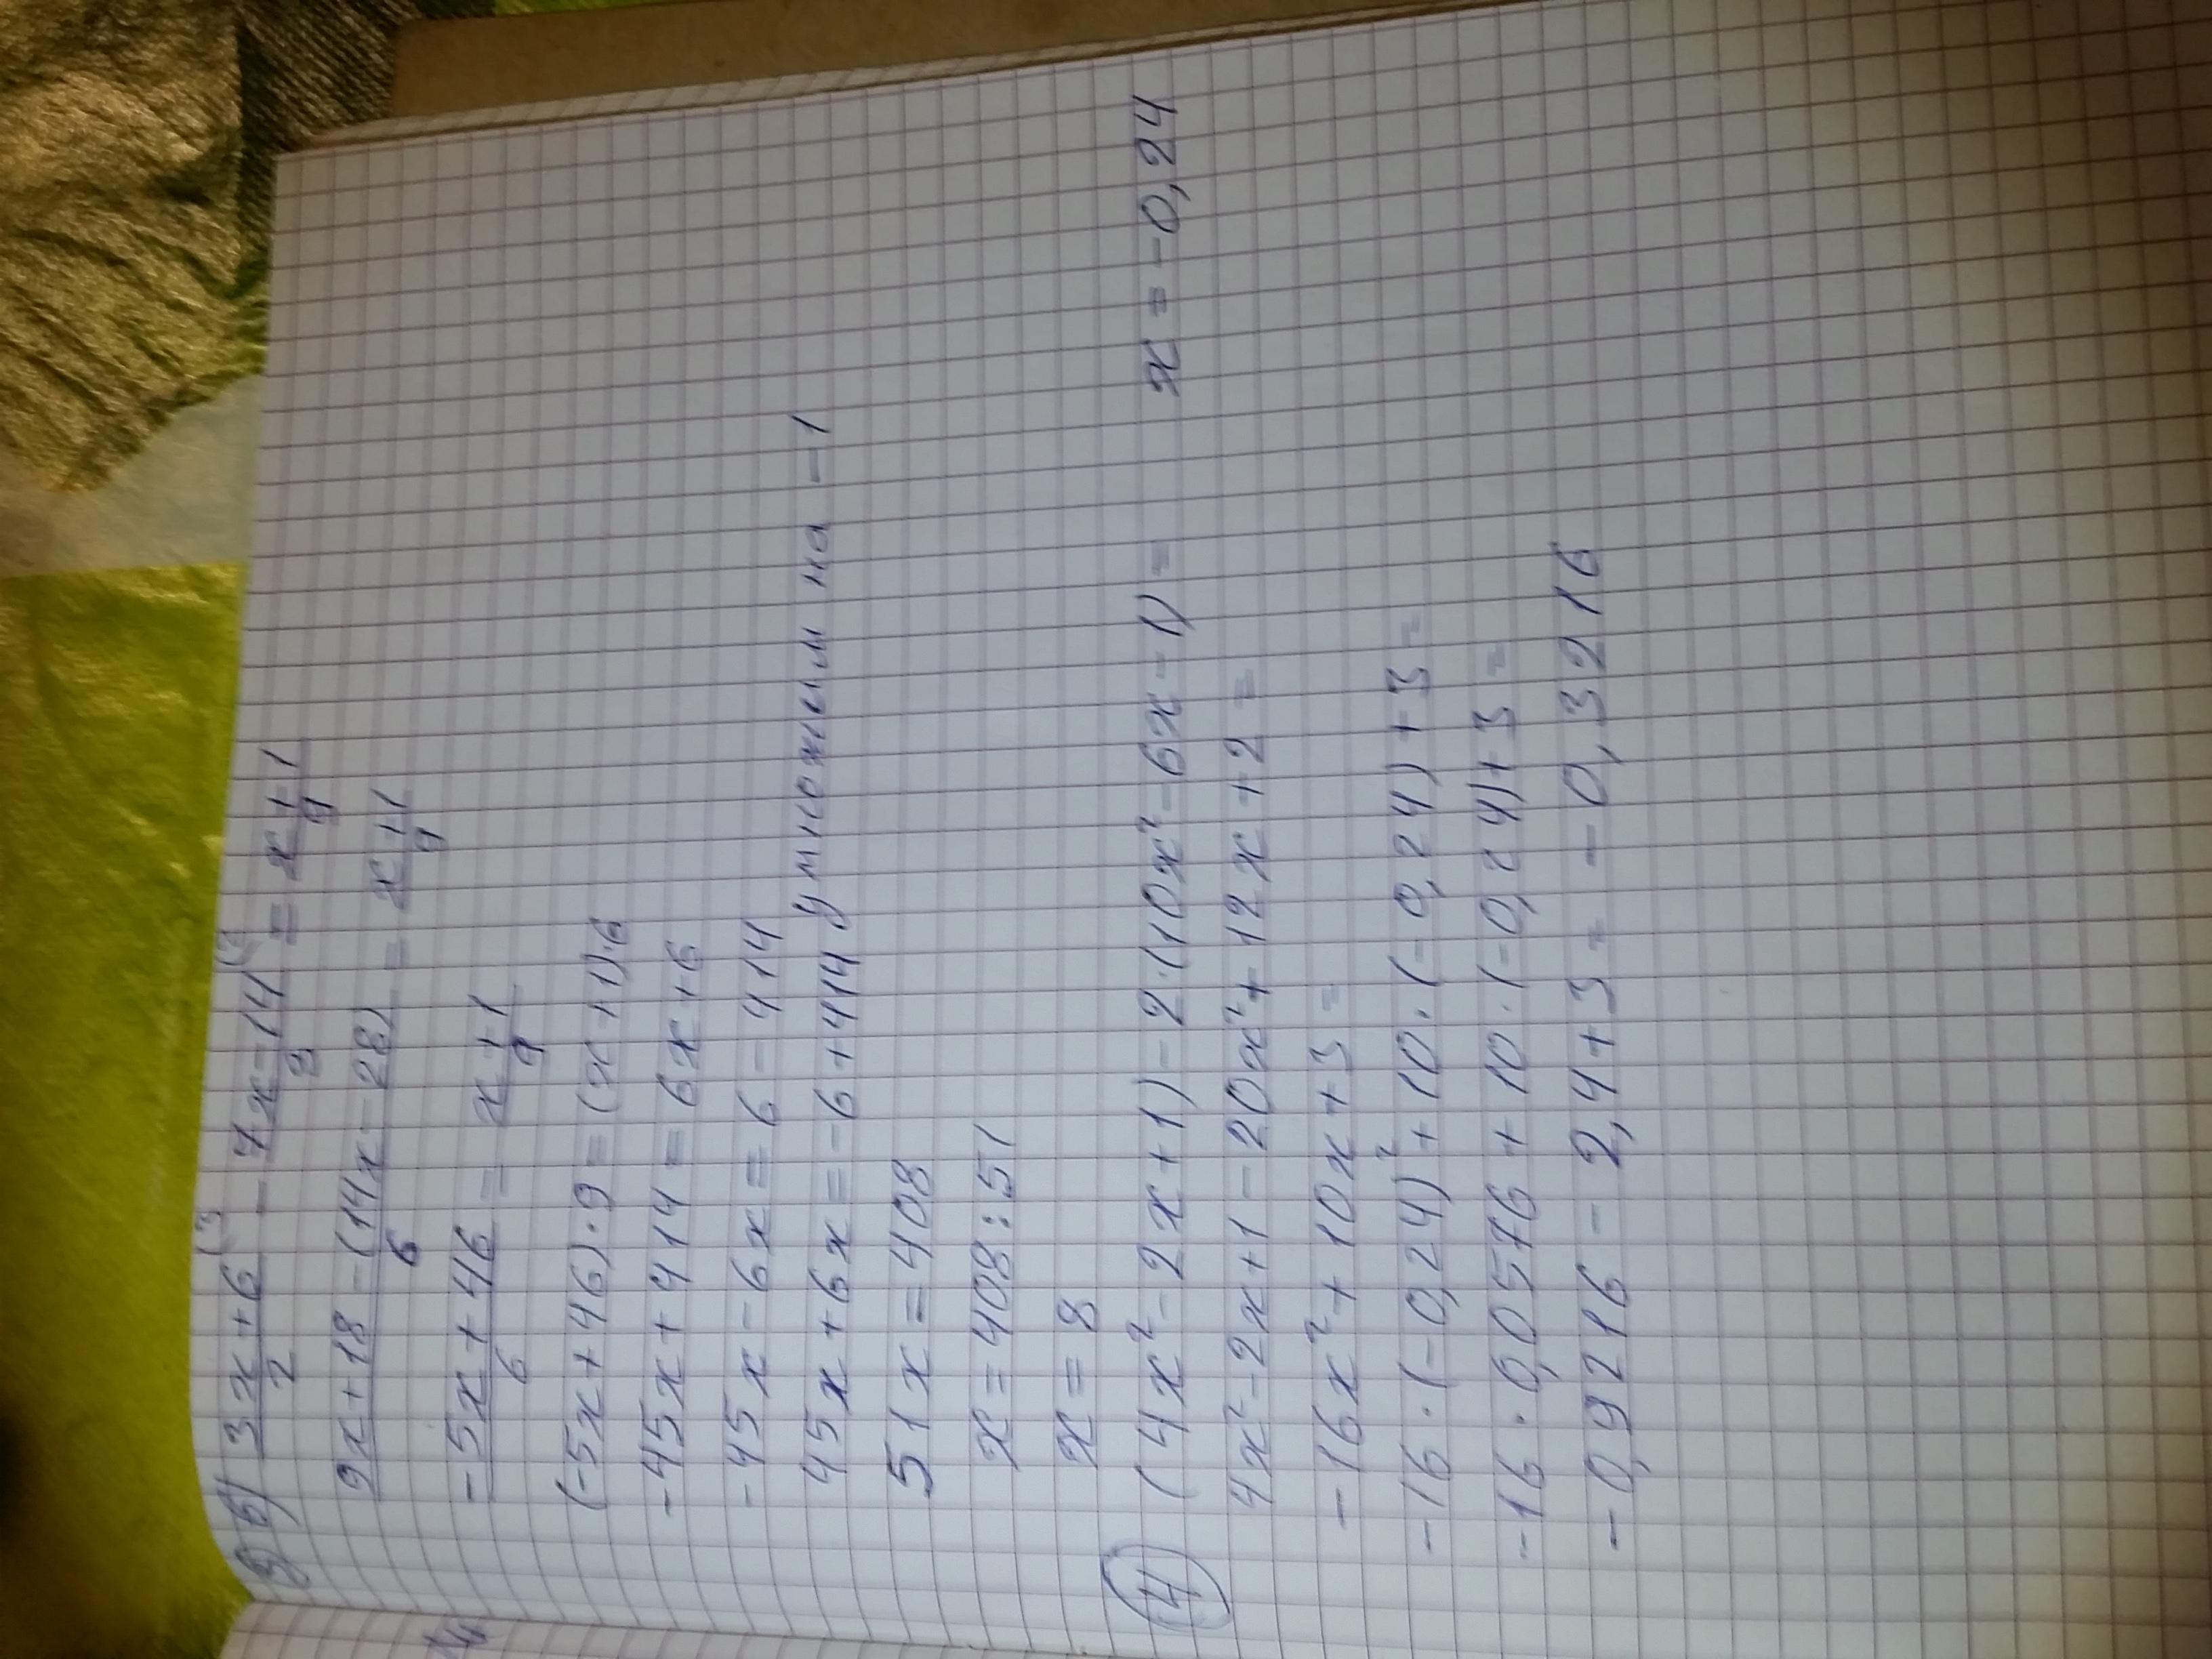 3) б) (3x+6)/2 (3 - (7x-14)/3 (2 = (x+1)/9
(9x+18-(14x-28))/6 = (x+1)/9
(-5x+46)/6 = (x+1)/9
(-5x+46)·9=(x+1)·6
-45x+414=6x+6
-45x-6x=6-414
45x+6x=-6+414 умножим на -1
51x=408
x=408:51
x=8
4 (4x²-2x+1)-2·(10x²-6x-1)= x=-0,24
4x²-2x+1-20x²+12x+2=
-16x²+10x+3=
-16·(-0,24)²+10·(-0,24)+3=
-16·0,0576+10·(-0,24)+3=
-0,9216-2,4+3=-0,3216